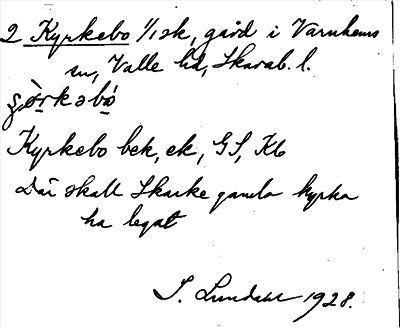 2 Kyrkebo 1/1 sk, gård i Varnhems
sn, Valle hd, Skarab. l.
Kyrkebo bek, ek, GS, Kb
Där skall Skarke gamla kyrka
ha legat
S. Lundahl 1928.